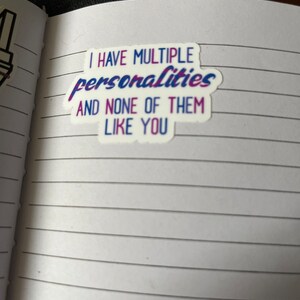 I HAVE MULTIPLE
personalities
AND NONE OF THEM
LIKE YOU